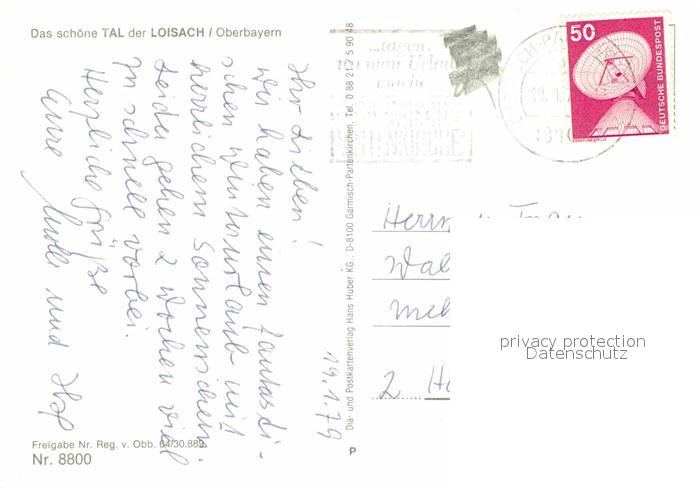 Das schöne TAL der LOISACH / Oberbayern
Ihr Lieben!
Wir haben einen fantasti-
schen Winterurlaub mit
herrlichem Sonnenschein.
Leider gehen 2 Wochen viel
zu schnell vorbei.
Herzliche Grüße
Eure
und
19.1.79
Freigabe Nr. Reg. v. Obb. 64/30.889
Nr. 8800
Dia- und Postkartenverlag Hans Huber KG., D-8100 Garmisch-Partenkirchen, Tel. 0 88 21/2 5 90 48
P
...tagen,
wo man Urlaub
macht
50
DEUTSCHE BUNDESPOST
Herrn
Wal
2 Ha
privacy protection
Datenschutz